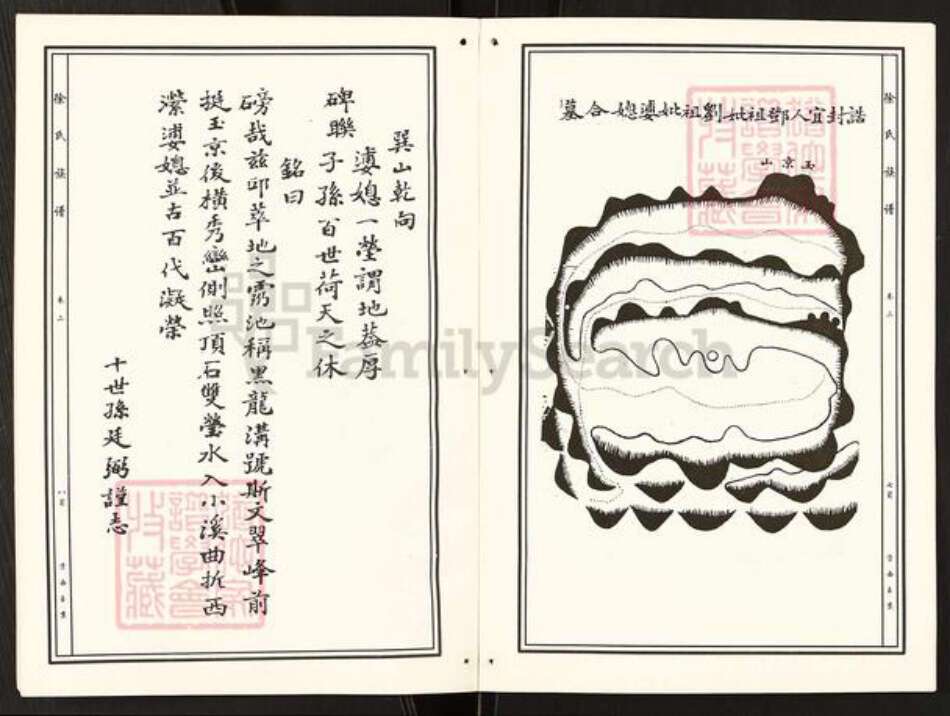 誥封宜人鄧祖妣劉祖妣婆媳合墓
玉京山
徐氏族譜
卷上
巽山乾向
碑聯
婆媳一塋謂地蓋厚
子孫百世荷天之休
銘曰
磅哉兹邱萃地之靈池稱黑龍溝號斯文翠峰前
挺玉京後橫秀巒側照頂石雙瑩水入小溪曲折西
瀠婆媳並古百代凝榮
十世孫廷弼謹志
徐氏族譜
卷上
FamilySearch